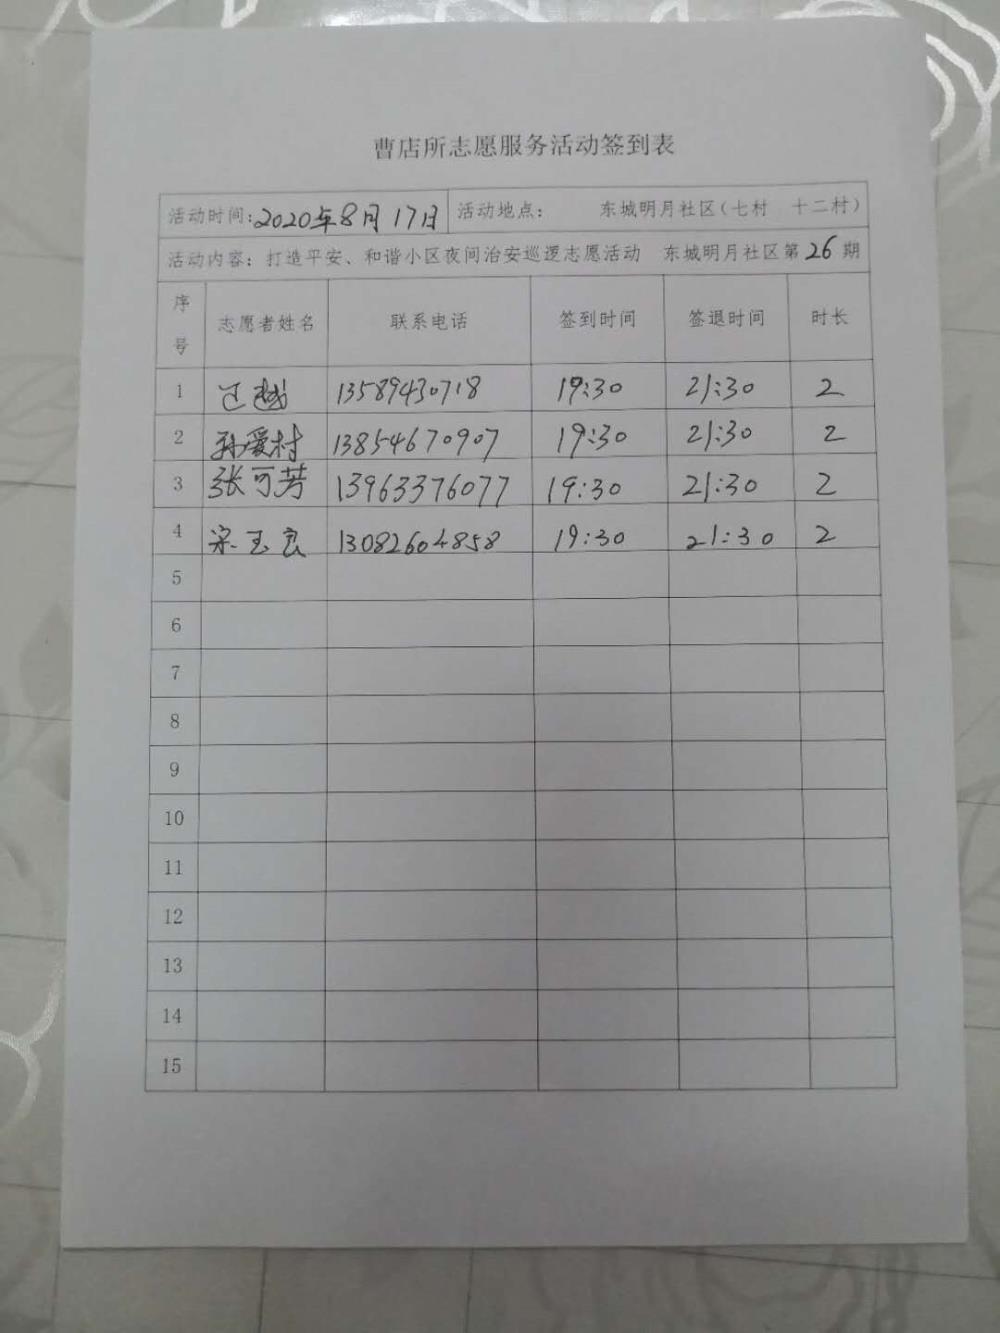 曹店所志愿服务活动签到表
活动时间:2020年8月17日 活动地点: 东城明月社区(七村 十二村)
活动内容: 打造平安、和谐小区夜间治安巡逻志愿活动 东城明月社区第26期
序号 志愿者姓名 联系电话 签到时间 签退时间 时长
1 越 13589430718 19:30 21:30 2
2 孙爱村 13854670907 19:30 21:30 2
3 张可芳 13963376077 19:30 21:30 2
4 梁玉良 13082604858 19:30 21:30 2
5
6
7
8
9
10
11
12
13
14
15